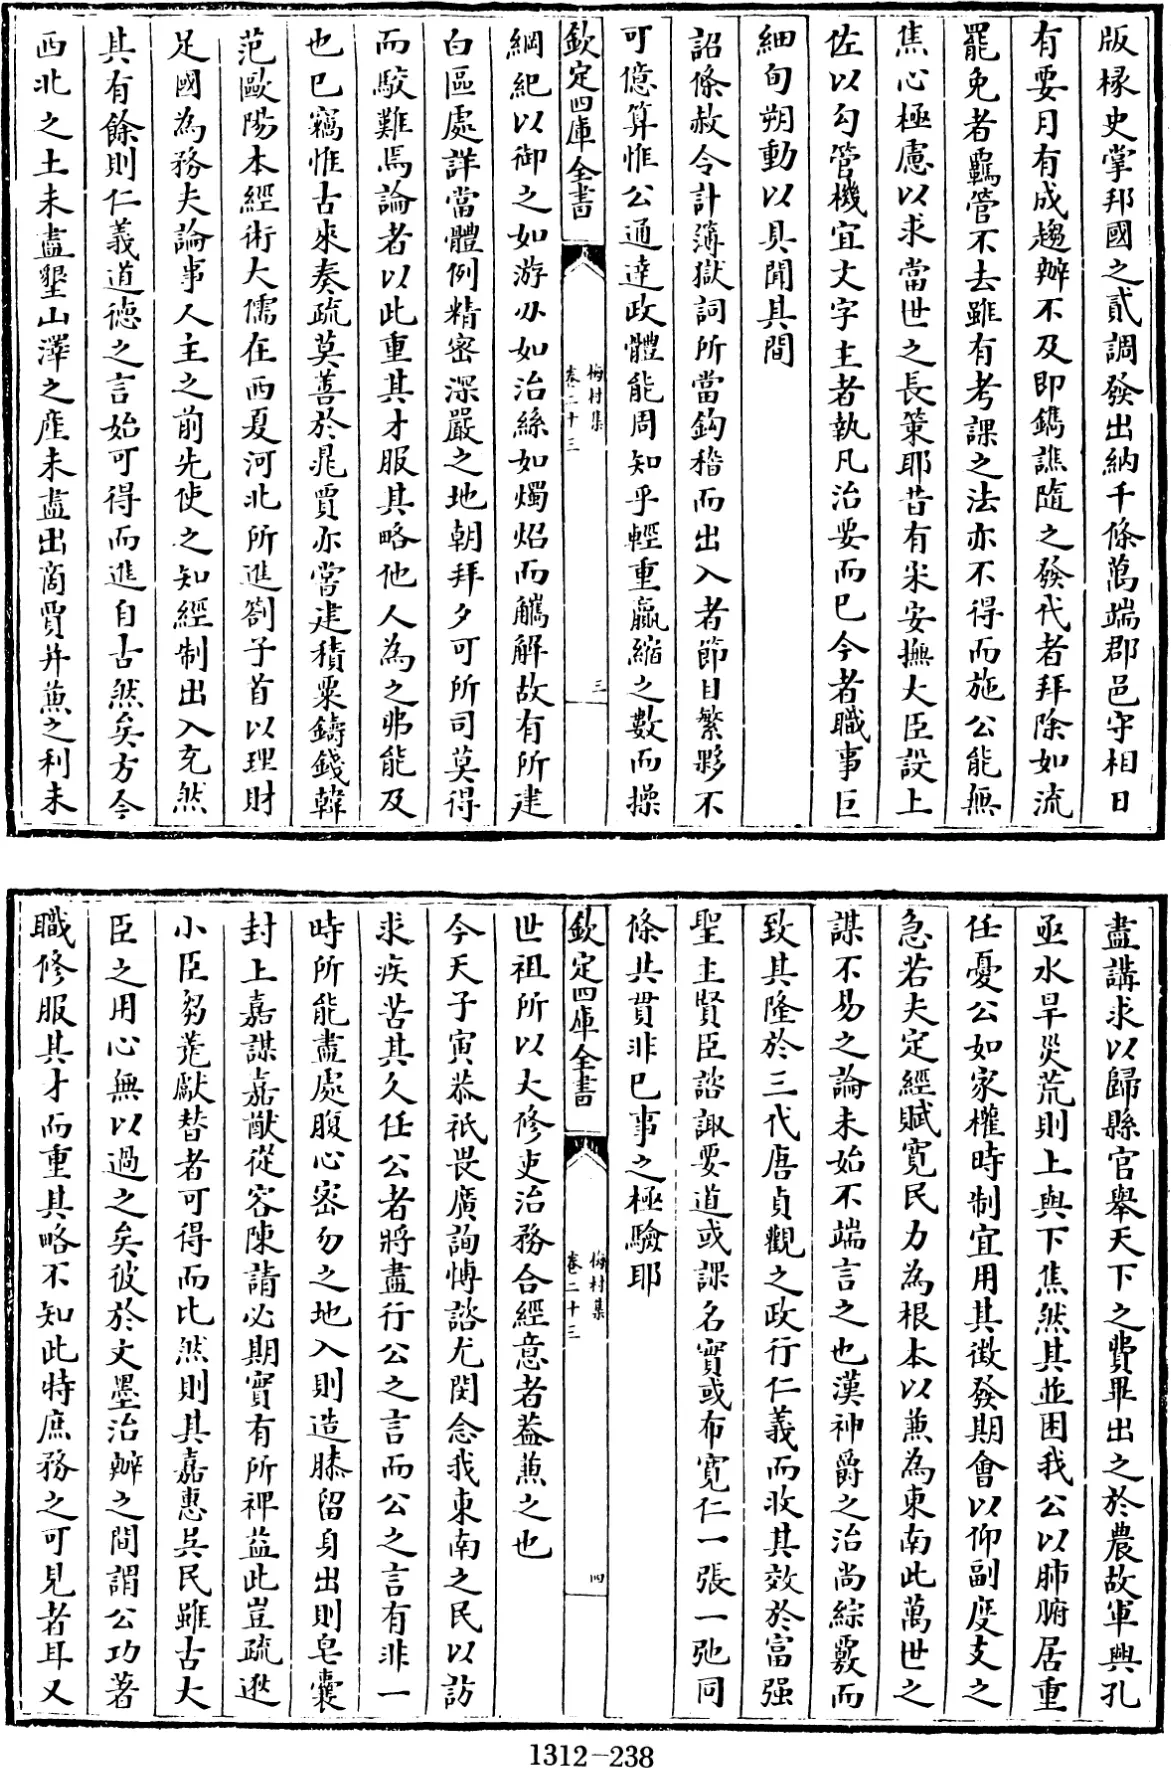 版椽史掌邦國之貳調發出納千條萬端郡邑守相日
有要月有成趨辦不及即鐫譙隨之發代者拜除如流
罷免者羈管不去雖有考課之法亦不得而施公能無
焦心極慮以求當世之長策耶昔有宋安撫大臣設上
佐以勾管機宜文字主者執凡治要而已今者職事巨
細旬朔動以具聞其間
詔條赦令計簿獄詞所當鈎稽而出入者節目繁夥不
可億算惟公通達政體能周知乎輕重贏縮之數而操
欽定四庫全書
梅村集
卷二十三
三
綱紀以御之如游刃如治絲如燭炤而觿解故有所建
白區處詳當體例精密深嚴之地朝拜夕可所司莫得
而駮難焉論者以此重其才服其略他人為之弗能及
也已竊惟古來奏疏莫善於鼂賈亦嘗建積粟鑄錢韓
范歐陽本經術大儒在西夏河北所進劄子首以理財
足國為務夫論事人主之前先使之知經制出入充然
其有餘則仁義道德之言始可得而進自古然矣方今
西北之土未盡墾山澤之産未盡出商賈并兼之利未
盡講求以歸縣官舉天下之費畢出之於農故軍興孔
亟水旱災荒則上與下焦然其並困我公以肺腑居重
任憂公如家權時制宜用其徵發期會以仰副度支之
急若夫定經賦寛民力為根本以兼為東南此萬世之
謀不易之論未始不端言之也漢神爵之治尚綜覈而
致其隆於三代唐貞觀之政行仁義而收其效於富强
聖主賢臣諮諏要道或課名實或布寛仁一張一弛同
條共貫非已事之極驗耶
欽定四庫全書
梅村集
卷二十三
四
世祖所以大修吏治務合經意者葢兼之也
今天子寅恭祇畏廣詢博諮尤閔念我東南之民以訪
求疾苦其久任公者將盡行公之言而公之言有非一
時所能盡處腹心宻勿之地入則造膝留身出則皂囊
封上嘉謀嘉猷從容陳請必期實有所裨益此豈疏逖
小臣芻蕘獻替者可得而比然則其嘉惠吳民雖古大
臣之用心無以過之矣彼於文墨治辦之間謂公功著
職修服其才而重其略不知此特庶務之可見者耳又
1312-238